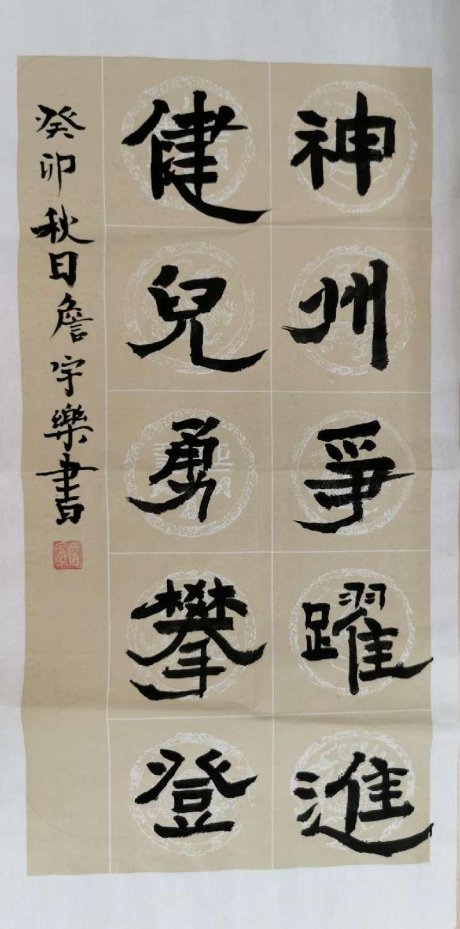 神州爭躍進
健兒勇攀登
癸卯秋日詹宇樂書